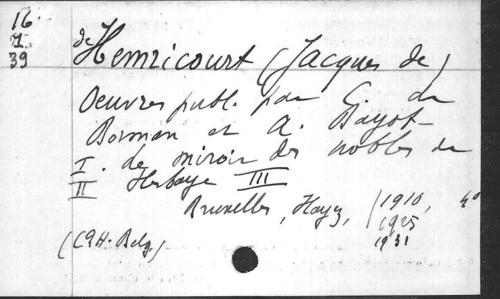 16.
1.
39
de Hemricourt (Jacques de)
Oeuvres publ. par C. de
Borman et A. Bayot
I. Le miroir des nobles de
II Hesbaye III
Bruxelles, Hayez, 1910, 4°
1925
1931
(CAH. Belg.)